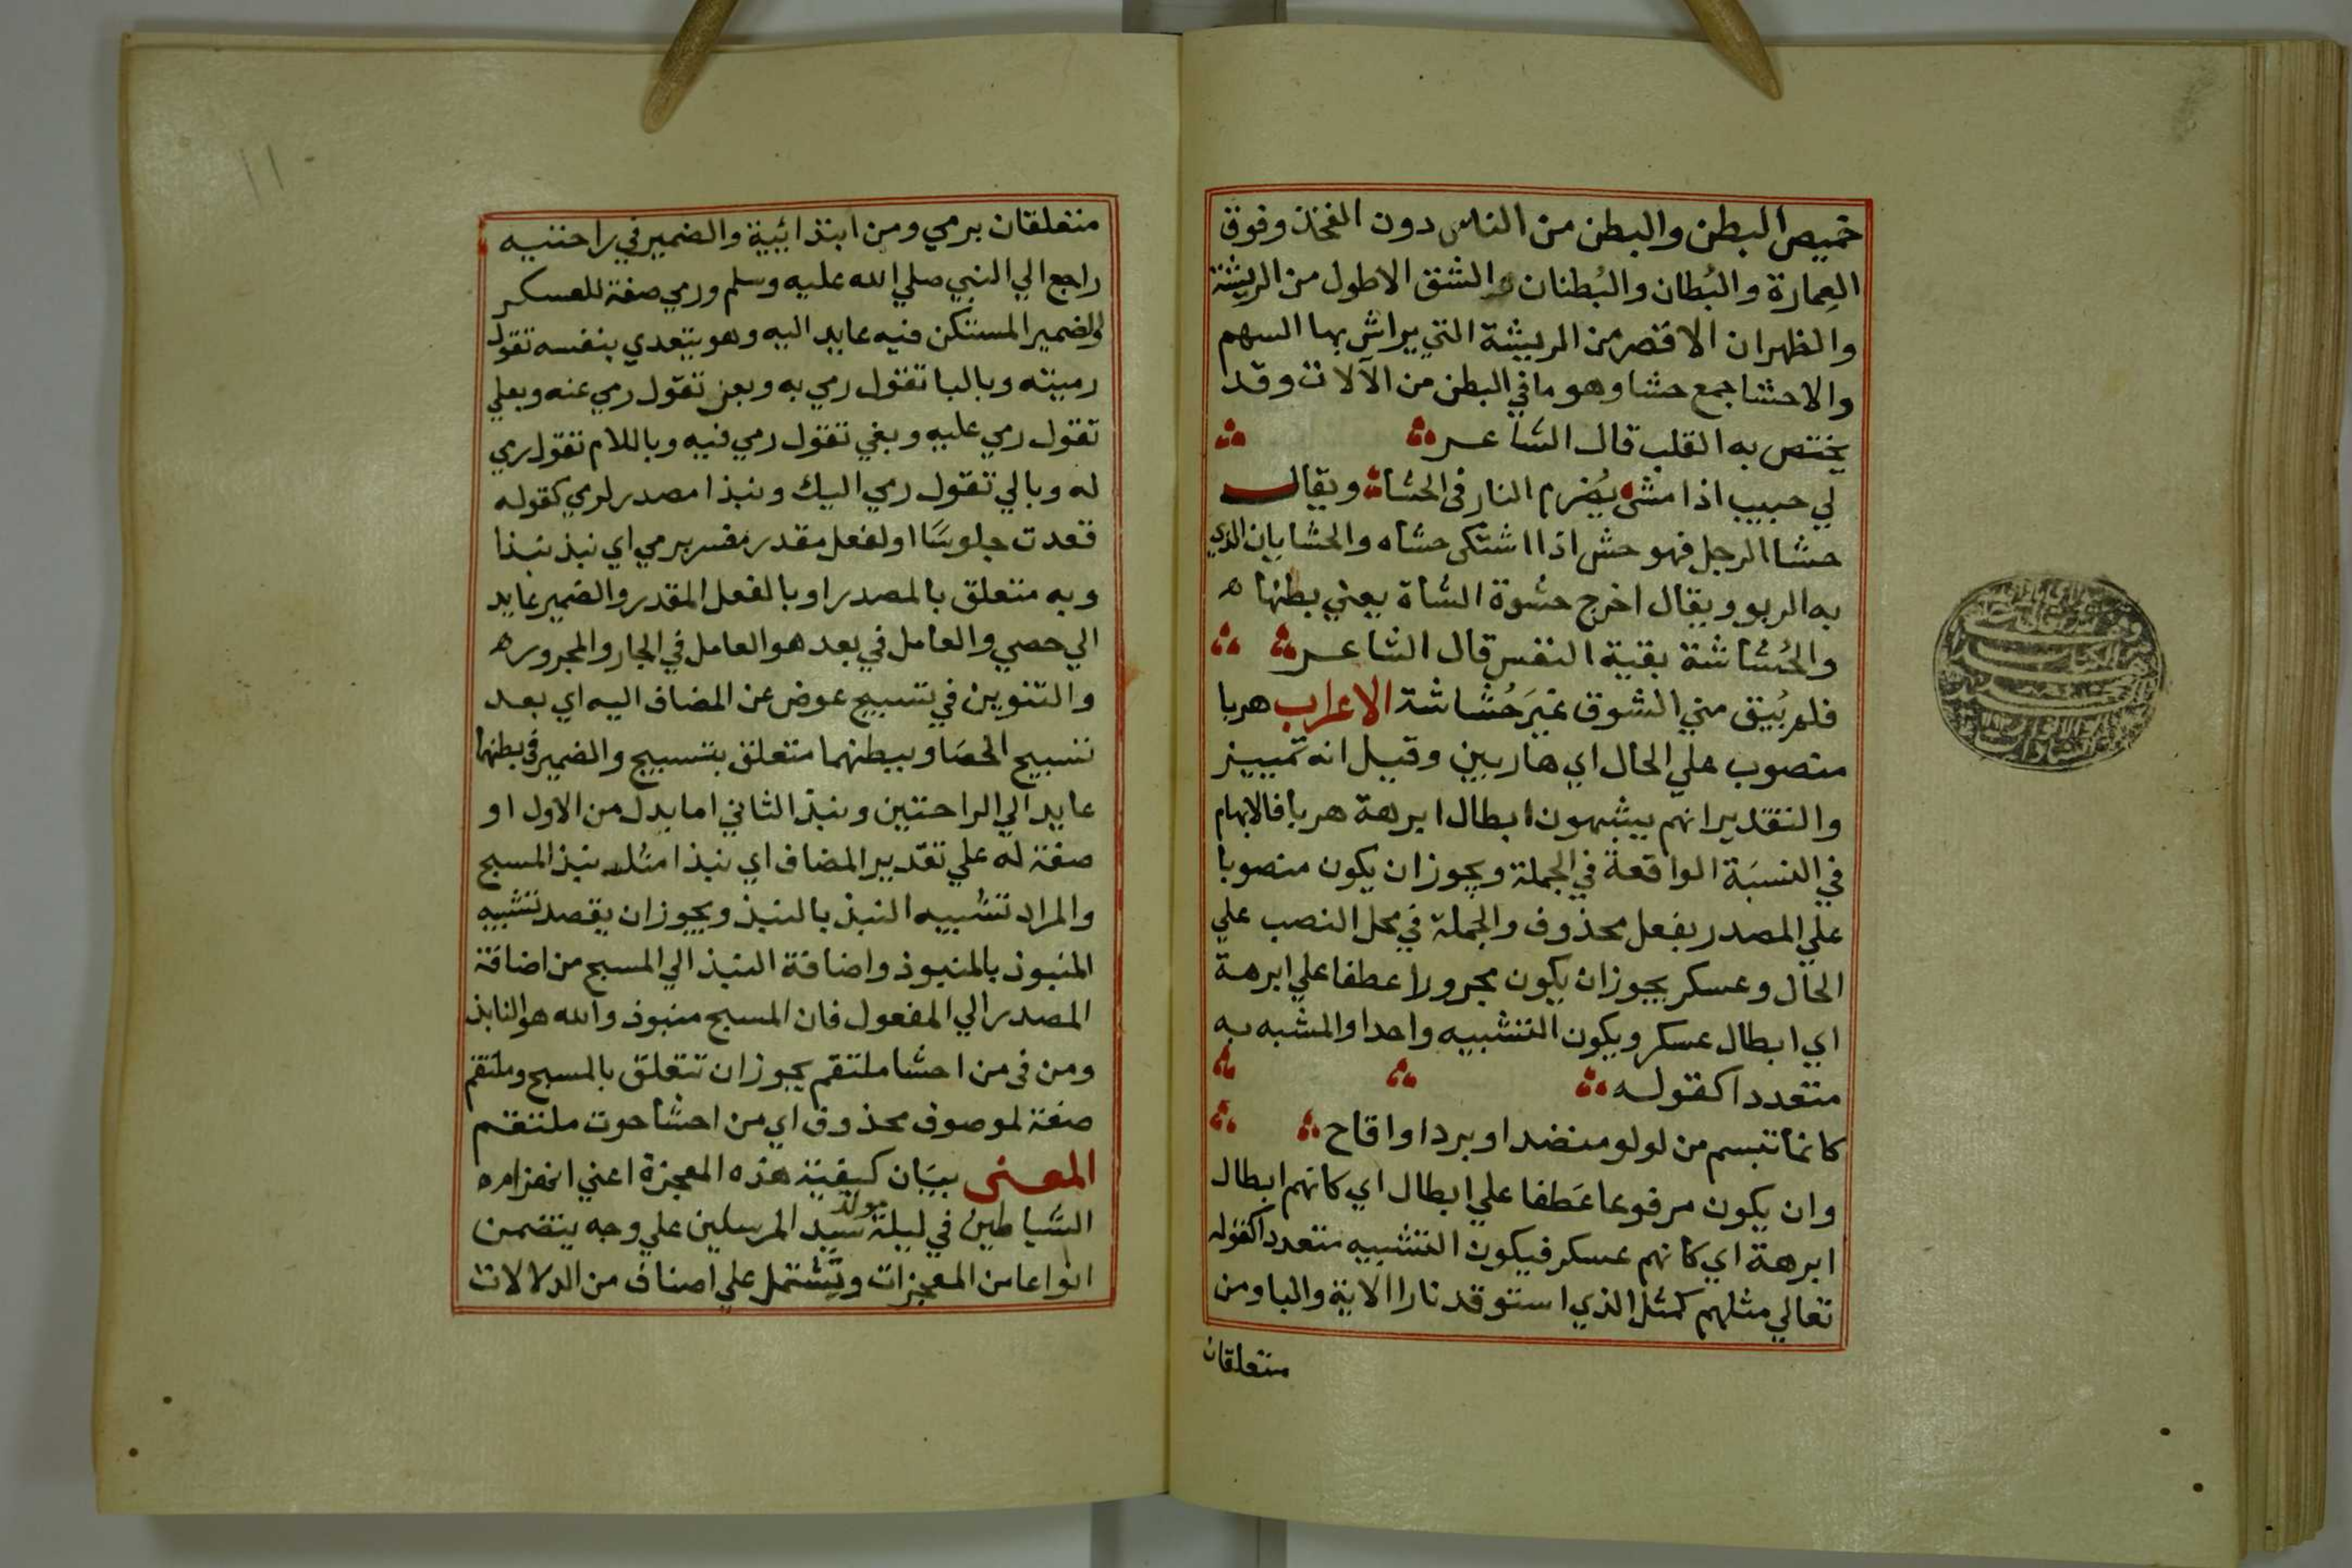 خميص البطن والبطن من الناس دون الفخذ وفوق
العِمارة والبُطان والبُطنان والشق الاطول من الريشة
والظهران الاقصر من الريشة التي يراش بها السهم
والاحشا جمع حشا وهو ما في البطن من الآلات وقد
يختص به القلب قال الشاعر
لي حبيب اذا مشى يُضرم النار في الحشا ويقال
حشا الرجل فهو حش اذا اشتكى حشاه والحشايان الذي
به الربو ويقال اخرج حشوة الشاة يعني بطنها ه
والحُشاشة بقية النفس قال الشاعر
فلم يُبق مني الشوق غيَر حُشاشة الاعراب هربا
منصوب علي الحال اي هاربين وقيل انه تمييز
والتقدير انهم يشبهون ابطال ابرهة هربا فالابهام
في النسبَة الواقعة في الجملة ويجوز ان يكون منصوبا
علي المصدر بفعل محذوف والجملة في محل النصب علي
الحال وعسكر يجوز ان يكون مجرورا عطفا علي ابرهة
اي ابطال عسكر ويكون التشبيه واحدا والمشبه به
متعددا كقوله
كانما تبسم من لولو منضد او برد او اقاح
وان يكون مرفوعا عَطفا علي ابطال اي كانهم ابطال
ابرهة اي كانهم عسكر فيكون التشبيه متعددا كقوله
تعالي مثلهم كمثل الذي استوقد نارا الاية والبا ومن
متعلقان
متعلقان برمي ومن ابتدائيية والضمير في راحتيه
راجع الي النبي صلي الله عليه وسلم ورمي صفة للعسكر
والضمير المستكن فيه عايد اليه وهو يتعدي بنفسه تقول
رميته وبالبا تقول رمي به وبعن تقول رمي عنه وبعلي
تقول رمي عليه وبفي تقول رمي فيه وباللام تقول رمي
له وبالي تقول رمي اليك ونبذا مصدر لرمي كقوله
قعدت جلوسًا او لفعل مقدر مفسر برمي اي نبذ نبذا
وبه متعلق بالمصدر او بالفعل المقدر والضمير عايد
الي حصي والعامل في بعد هو العامل في الجار والمجرور ه
والتنوين في تسبيح عوض عن المضاف اليه اي بعد
تسبيح الحصَا وببطنهما متعلق بتسبيح والضمير في بطنهما
عايد الي الراحتين ونبذ الثاني اما بدل من الاول او
صفة له علي تقدير المضاف اي نبذا مثل نبذ المسبح
والمراد تشبيه النبذ بالنبذ ويجوز ان يقصد تشبيه
المنبوذ بالمنبوذ واضافة النبذ الي المسبح من اضافة
المصدر الي المفعول فان المسبح منبوذ والله هو النابذ
ومن في من احشا ملتقم يجوز ان تتعلق بالمسبح وملتقم
صفة لموصوف محذوف اي من احشا حوت ملتقم
المعنى بيَان كيفية هذه المعجزة اعني انهزام ه
الشياطين في ليلة مولد سيد المرسلين علي وجه يتضمن
انواعا من المعجزات وتشتمل علي اصناف من الدلالات
١١